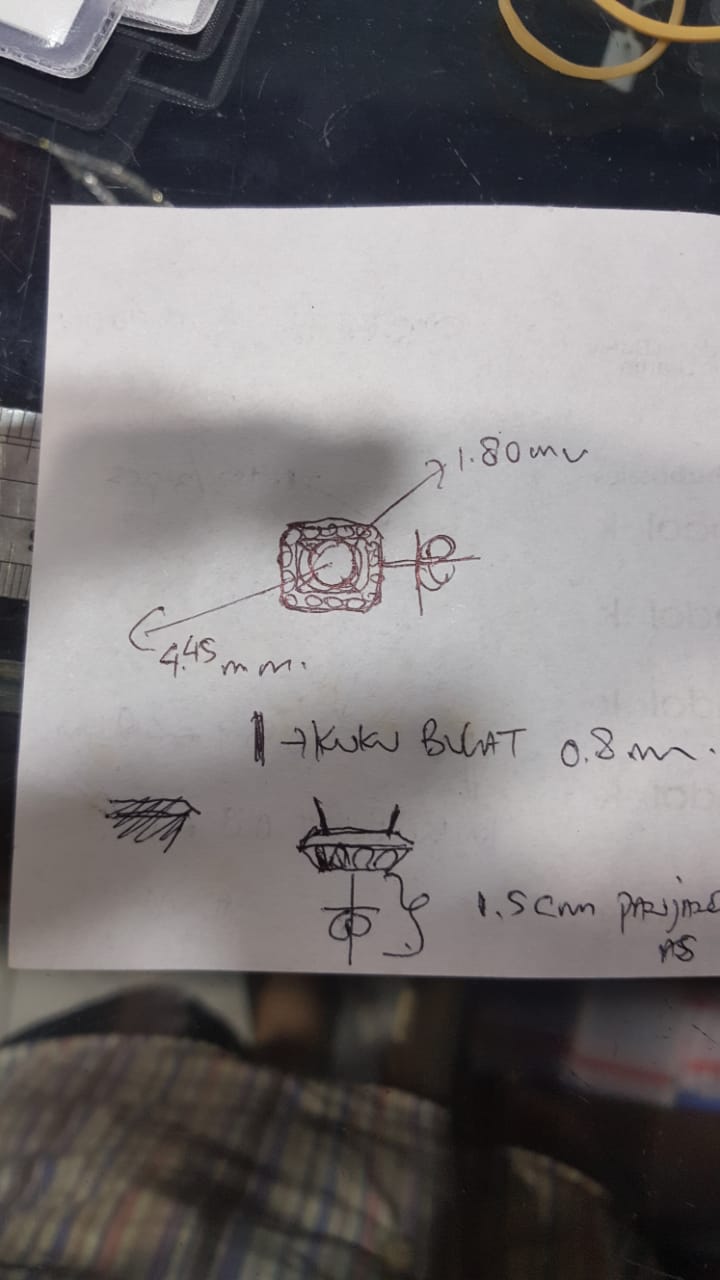 1.80 mm
4.45 mm.
→ KUKU BULAT 0.8 m.
1.5 cm PANJANG
AS